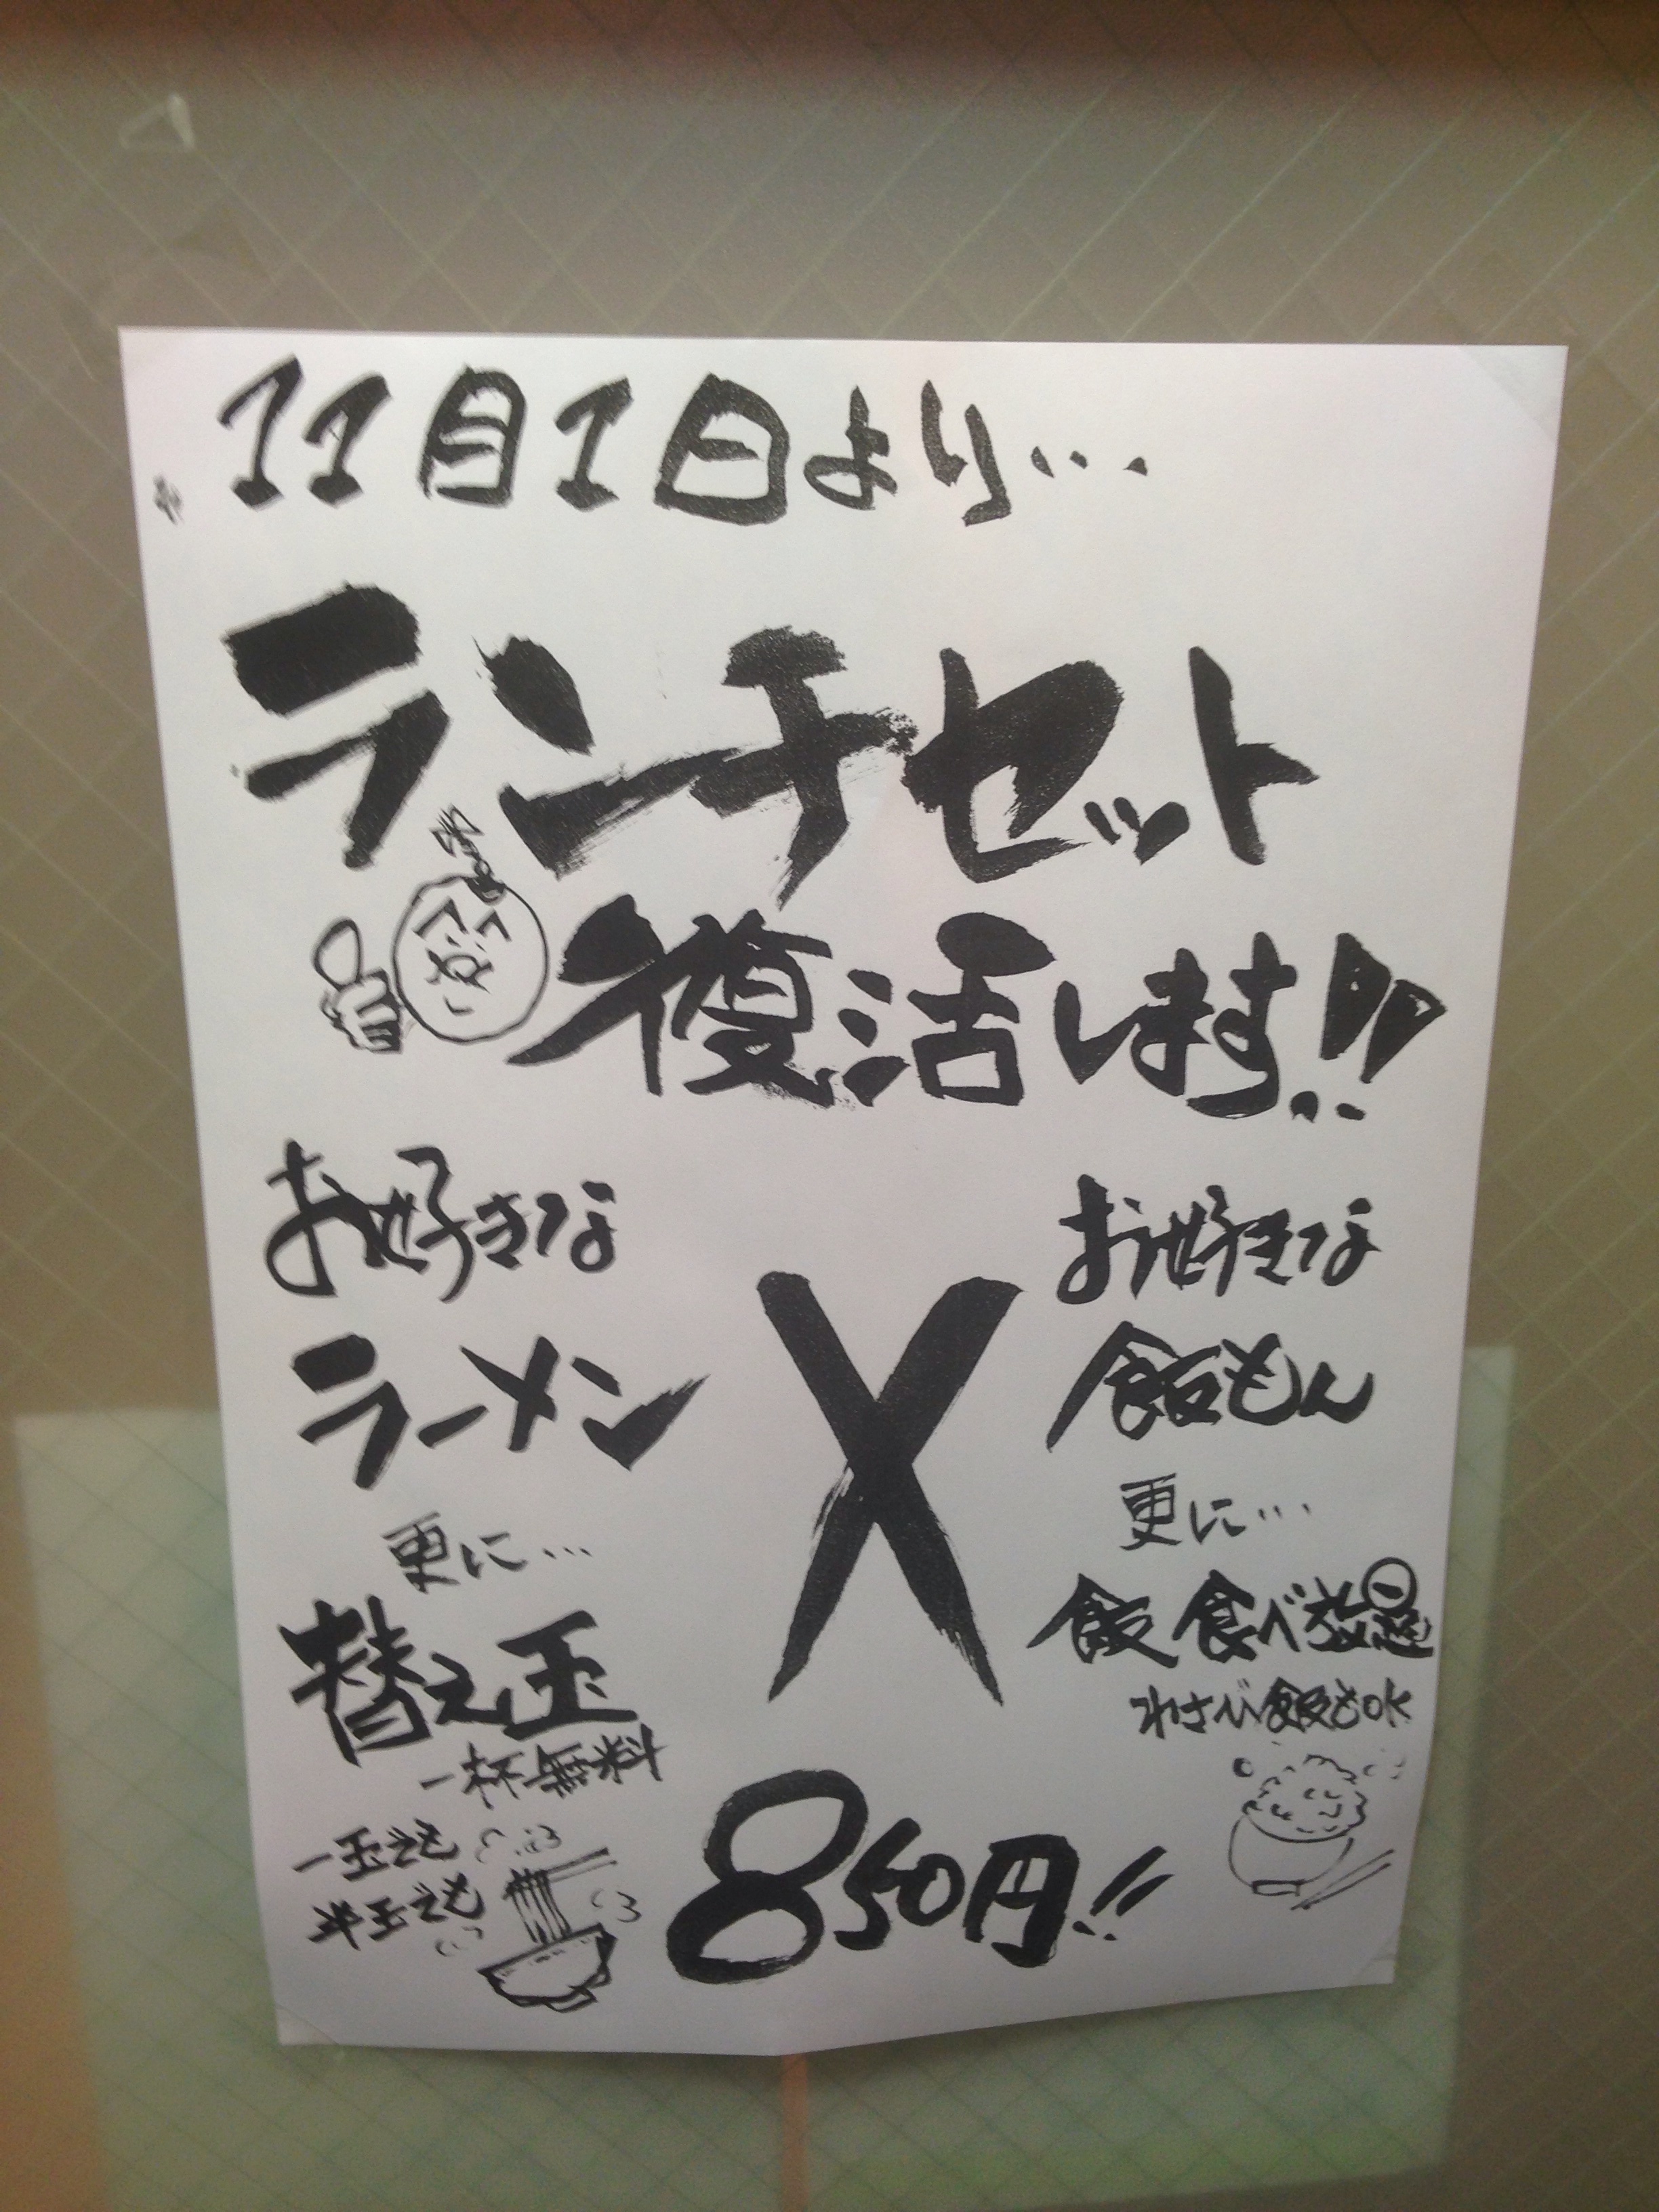 11月1日より…
ランチセット
復活します!!
お好きな
ラーメン
更に…
替え玉
一杯無料
一玉でも
半玉でも
X
お好きな
飯もん
更に…
飯食べ放題
わさび飯もOK
850円!!